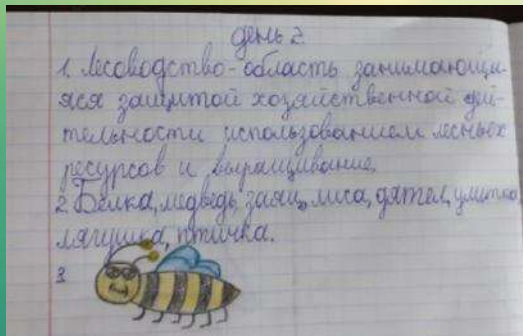 день 2
1. Лесоводство - область занимающи-
яся защитой хозяйственной дей-
тельности использованием лесных
ресурсов и выращивание.
2. Белка, медведь, заяц, лиса, дятел, улитка,
лягушка, птичка.
3